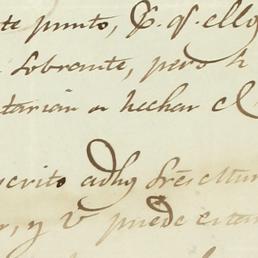 te punto, &. qͤ. ello
sobrante, pero h
tarian a hechar el
scrito adhg Srēs
r, y V puede estar